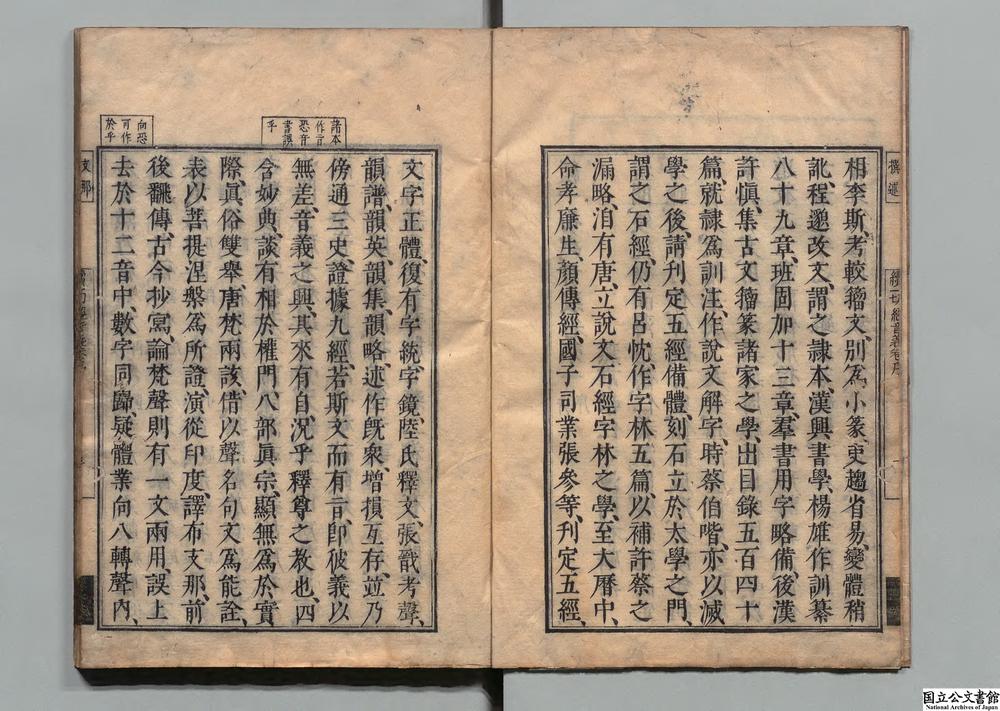 撰述
續一切經音義卷序
相李斯、考較籀文、別為小篆、吏趨省易、變體稍
訛、程邈改文、謂之隷本、漢興書學、楊雄作訓纂
八十九章、班固加十三章、羣書用字略備後漢
許慎、集古文籀篆諸家之學、出目錄五百四十
篇、就隷為訓注、作說文解字、時蔡伯喈、亦以滅
學之後、請刊定五經備體、刻石立於太學之門、
謂之石經、仍有呂忱作字林五篇、以補許蔡之
漏略、洎有唐、立說文石經字林之學、至大曆中、
命孝廉生、顏傳經、國子司業張參等、刊定五經、
諸本
作言
恐音
書誤
乎
文字正體、復有字統、字鏡、陸氏釋文、張戩考聲、
韻譜、韻英、韻集、韻略述作既衆、增損互存、並乃
傍通三史、證據九經、若斯文而有言、即彼義以
無差、音義之興、其來有自、況乎釋尊之教也、四
含妙典、談有相於權門、八部眞宗、顯無為於實
際、眞俗雙舉、唐梵兩該、借以聲名句文為能詮、
表以菩提涅槃為所證、演從印度、譯布支那、前
後飜傳、古今抄寫、論梵聲則有一文兩用、誤上
去於十二音中、數字同歸、疑體業向八轉聲內、
向恐
可作
於乎
支那
国立公文書館
National Archives of Japan